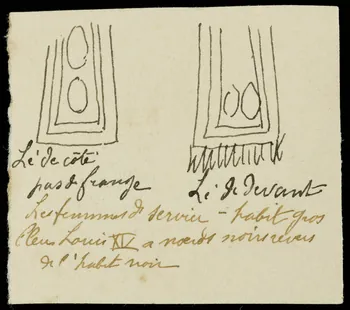 Lé de côté
pas de frange
Lé de devant
Les femmes de service – habit gros
bleu Louis XIV a nœuds noirs revers
de l'habit noir